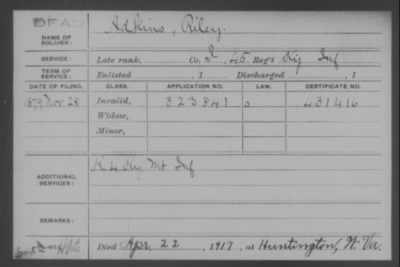 DEAD
NAME OF SOLDIER: Adkins, Riley.
SERVICE: Late rank, Co. I, 45 Reg't Ky Inf
TERM OF SERVICE: Enlisted , 1 Discharged , 1
DATE OF FILING. CLASS. APPLICATION NO. LAW. CERTIFICATE NO.
1879 Nov 28 Invalid, 323841 431416
Widow,
Minor,
ADDITIONAL SERVICES: K 4 Ky Mt Inf
REMARKS:
Died Apr. 22, 1917, at Huntington, W. Va.